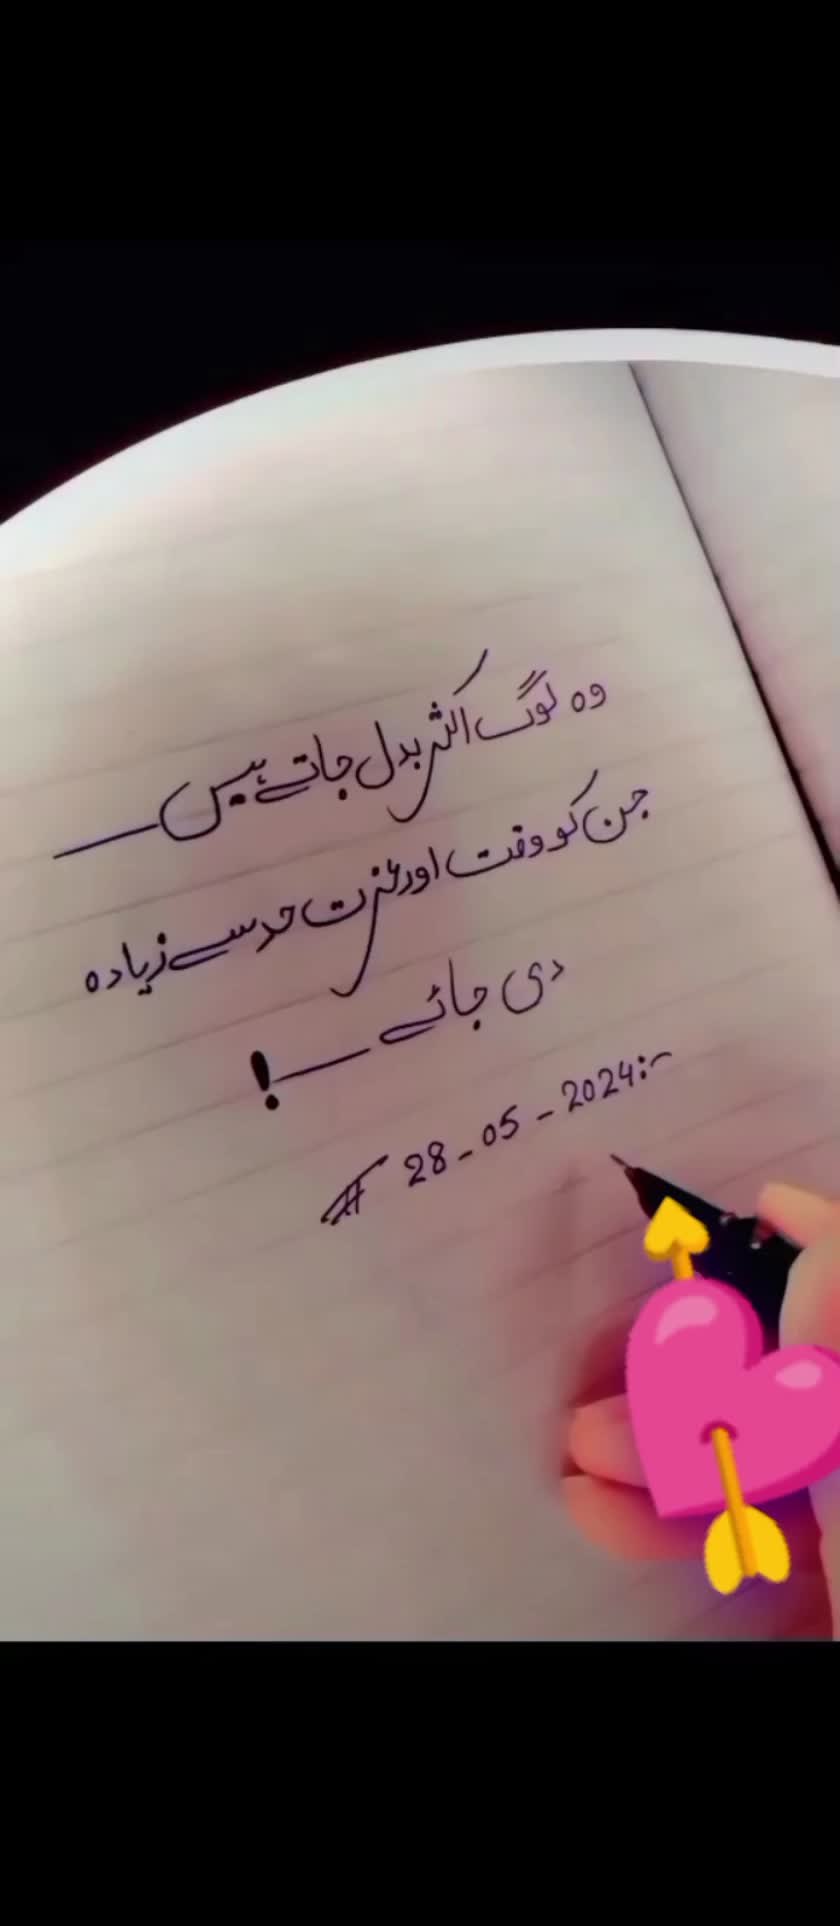 وہ لوگ اکثر بدل جاتے ہیں
جن کو وقت اور عزت حد سے زیادہ
دی جائے ـــ!
28-05-2024:-